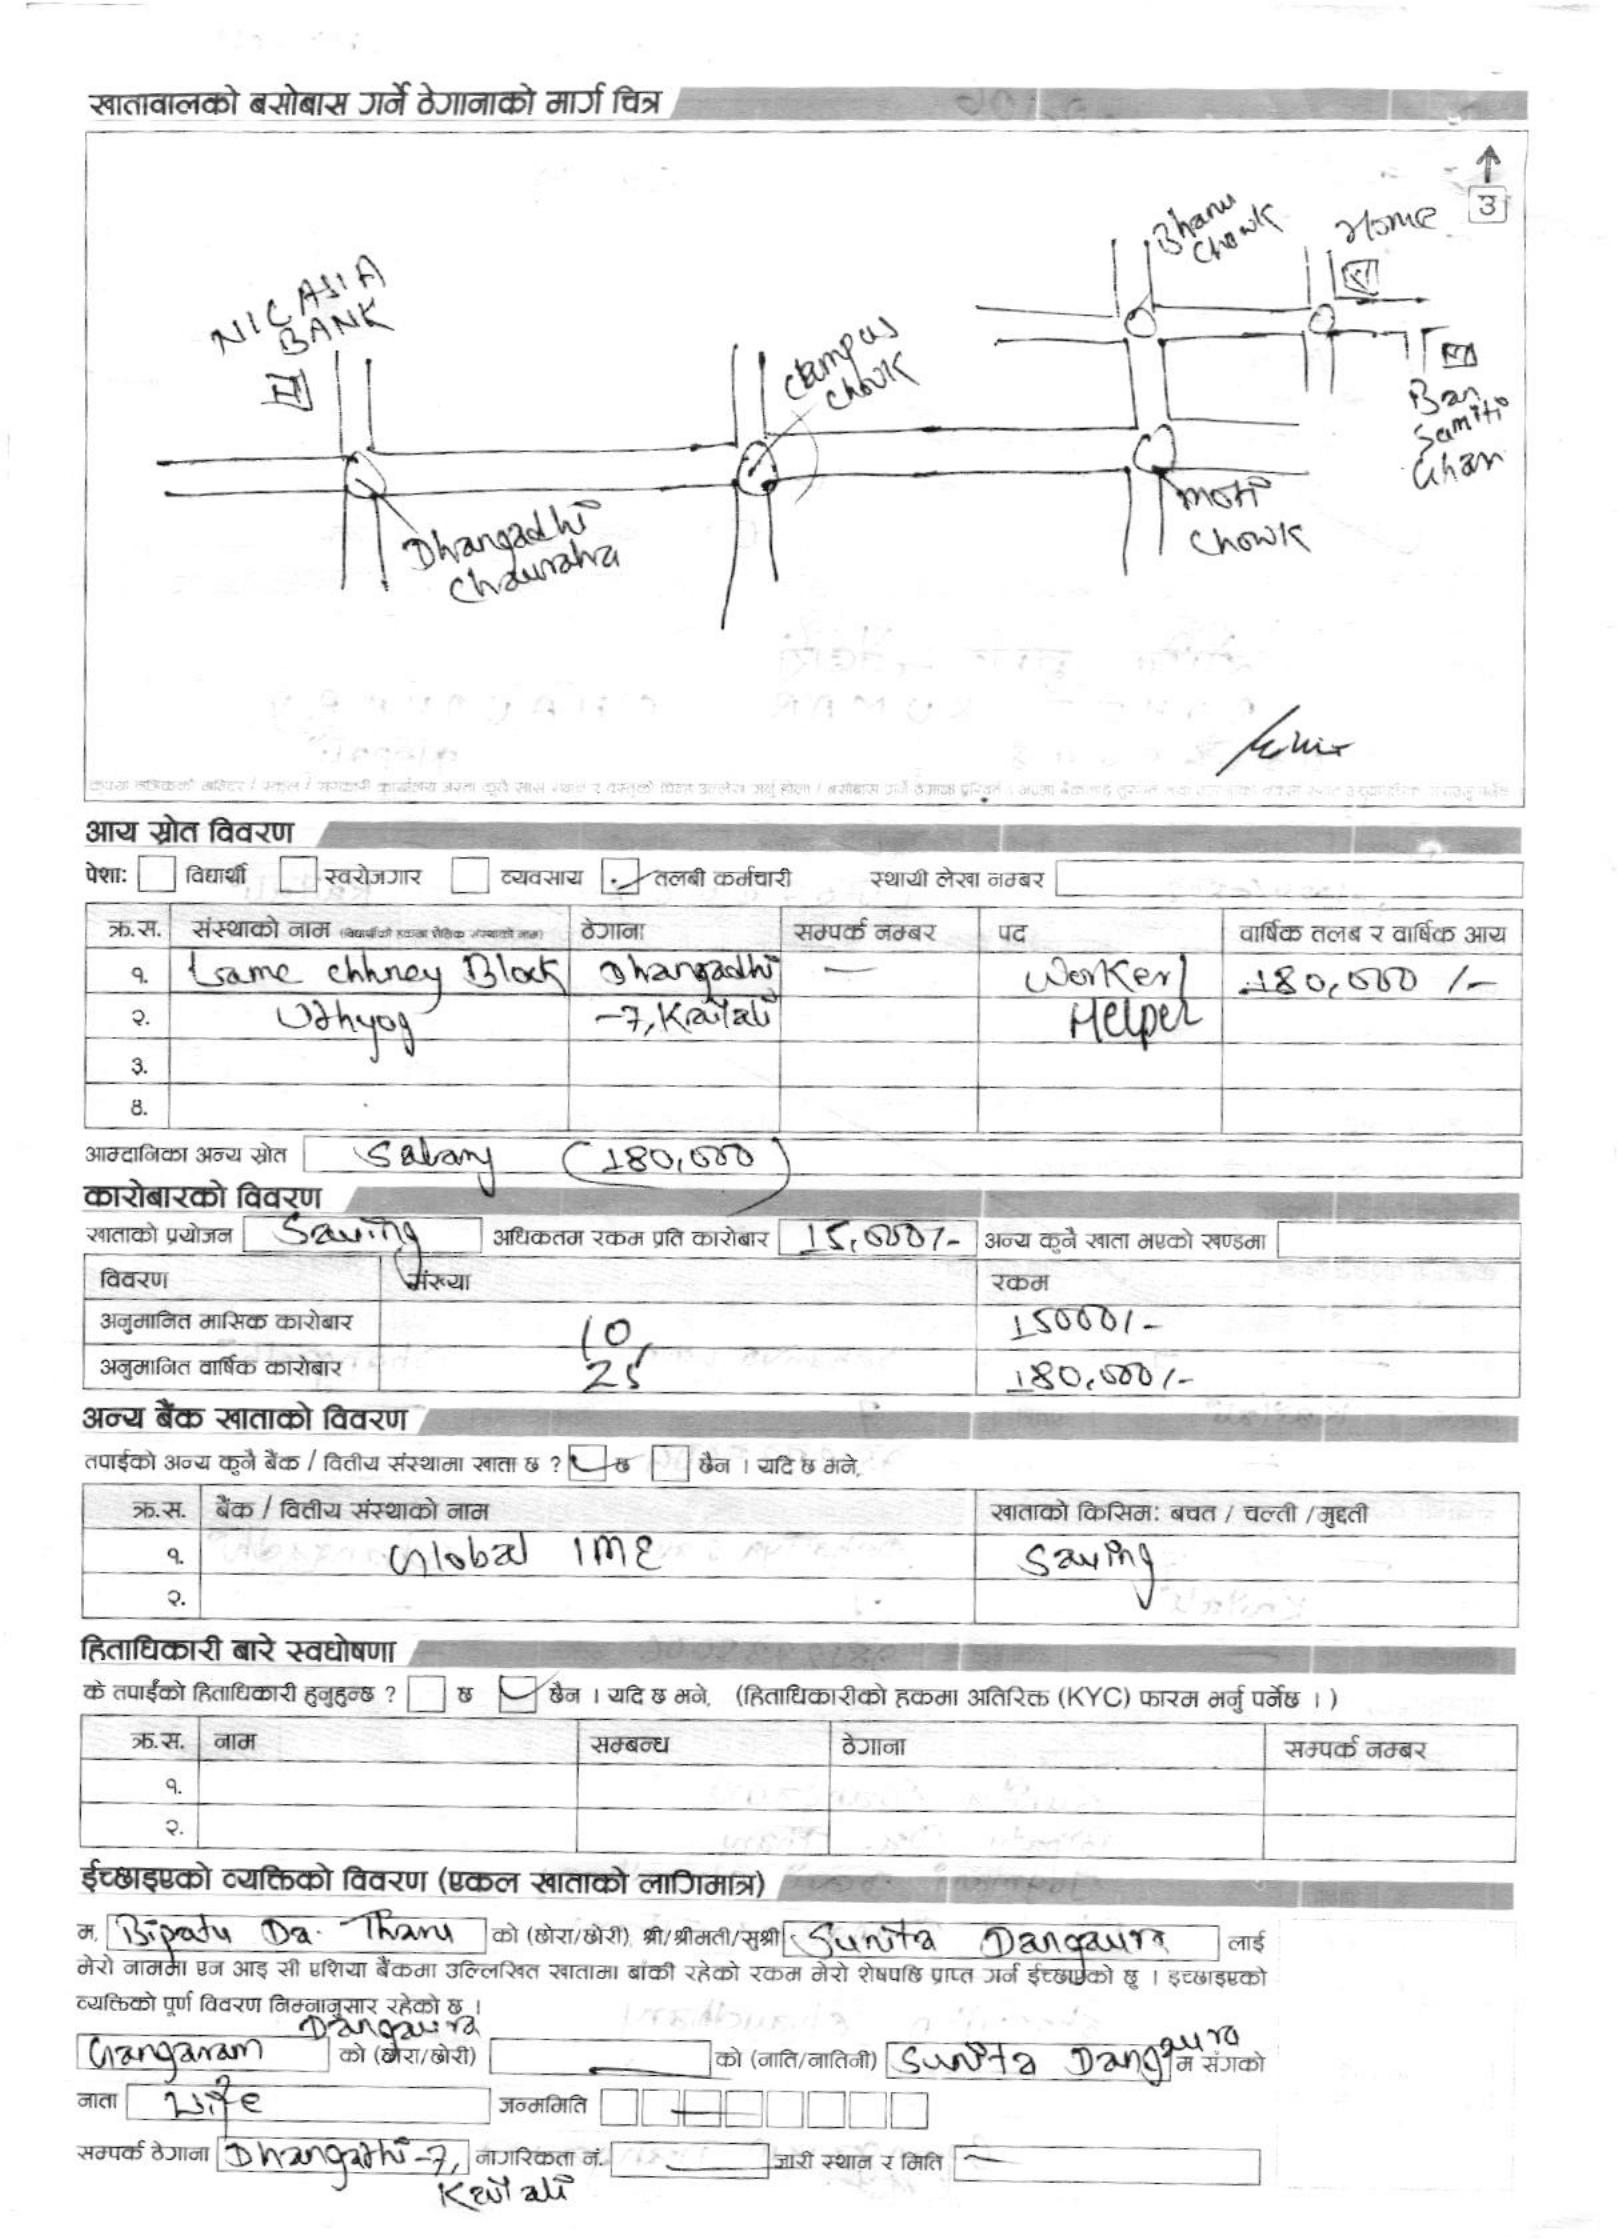 खातावालको बसोबास गर्ने ठेगानाको मार्ग चित्र
उ
NIC ASIA
BANK
Dhangadhi
Chauraha
Campus
Chowk
Bhanu
Chowk
Home
Ban
Samiti
Ghar
Moti
Chowk
आय स्रोत विवरण
पेशा: विद्यार्थी स्वरोजगार व्यवसाय तलबी कर्मचारी स्थायी लेखा नम्बर
क्र.स. संस्थाको नाम ठेगाना सम्पर्क नम्बर पद वार्षिक तलब र वार्षिक आय
१. Block Dhangadhi — Worker/ 180,000 /-
२. Udhyog -7, Kailali Helper
३.
४.
आम्दानिका अन्य स्रोत Salary (180,000)
कारोबारको विवरण
खाताको प्रयोजन Saving अधिकतम रकम प्रति कारोबार 15,000/- अन्य कुनै खाता भएको खण्डमा
विवरण संख्या रकम
अनुमानित मासिक कारोबार 10 15000/-
अनुमानित वार्षिक कारोबार 25 180,000/-
अन्य बैंक खाताको विवरण
तपाईको अन्य कुनै बैंक / वितीय संस्थामा खाता छ ? छ छैन । यदि छ भने,
क्र.स. बैंक / वितीय संस्थाको नाम खाताको किसिम: बचत / चल्ती /मुद्दती
१. Global IME Saving
२.
हिताधिकारी बारे स्वघोषणा
के तपाईको हिताधिकारी हुनुहुन्छ ? छ छैन । यदि छ भने, (हिताधिकारीको हकमा अतिरिक्त (KYC) फारम भर्नु पर्नेछ ।)
क्र.स. नाम सम्बन्ध ठेगाना सम्पर्क नम्बर
१.
२.
ईच्छाइएको व्यक्तिको विवरण (एकल खाताको लागिमात्र)
म, Bipatu Da. Tharu को (छोरा/छोरी) श्री/श्रीमती/सुश्री Sunita Dangaura लाई
मेरो नाममा एन आइ सी एशिया बैंकमा उल्लिखित खातामा बाँकी रहेको रकम मेरो शेषपछि प्राप्त गर्न ईच्छाएको छु । इच्छाइएको
व्यक्तिको पूर्ण विवरण निम्नानुसार रहेको छ ।
Gangaram Dangaura को (छोरा/छोरी) — को (नाति/नातिनी) Sunita Dangaura म संगको
नाता Wife जन्ममिति —
सम्पर्क ठेगाना Dhangadhi-7, Kailali नागरिकता नं. — जारी स्थान र मिति —